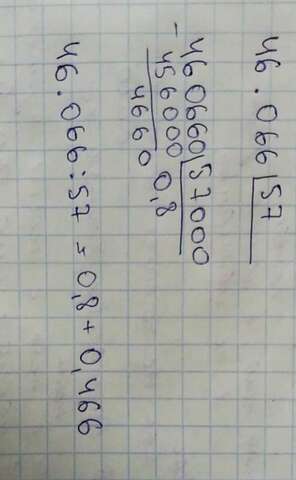 46.066 57
- 460660 57000
456000 0,8
4660
46.066:57 = 0,8 + 0,466